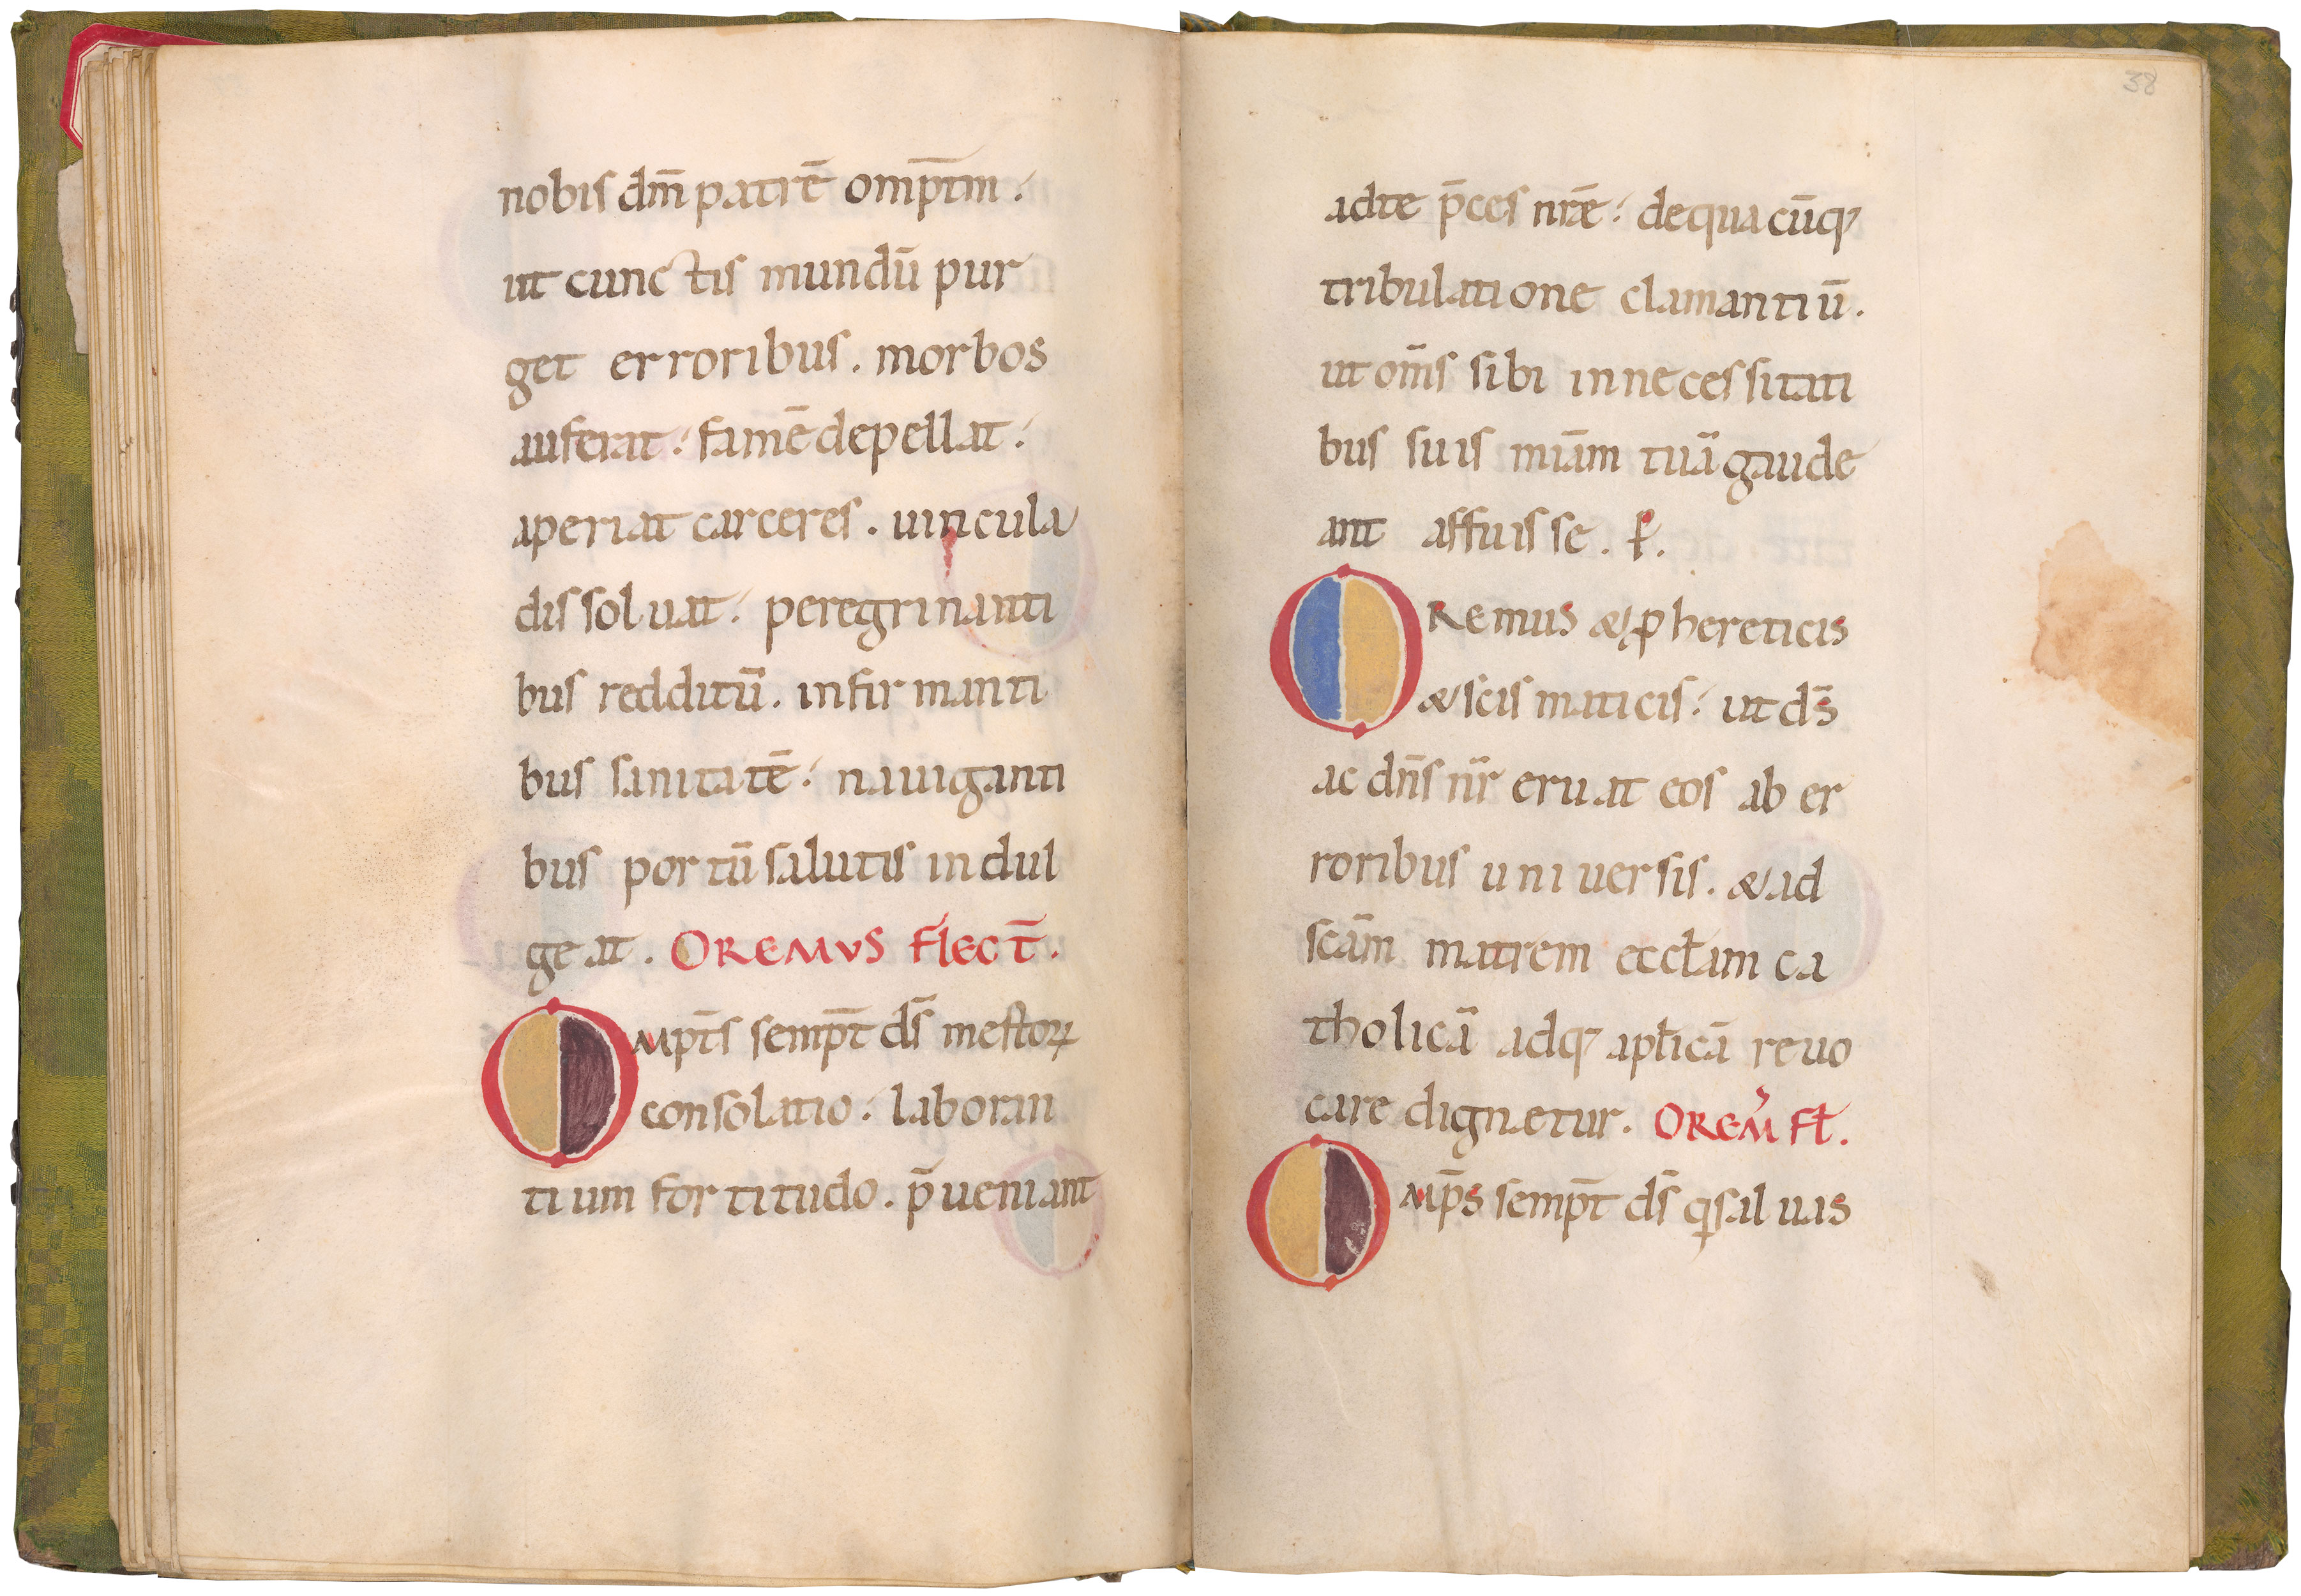 nobis dm̄ patrē omp̄tm.
ut cunctis mundū pur
get erroribus. morbos
auferat. famē depellat.
aperiat carceres. uincula
dissoluat. peregrinanti
bus redditū. infirmanti
bus sanitatē. nauiganti
bus portū salutis indul
geat. OREMVS flect̄.
Omp̄ts semp̄t ds̄ mestoꝝ
consolatio. laboran
tium fortitudo. p̄ueniant
38
adte p̄ces nr̄e. dequacūq;
tribulatione clamantiū.
ut om̄s sibi innecessitati
bus suis mīam tuā gaude
ant affuisse. P.
OREmus & ꝓ hereticis
& scismaticis. ut ds̄
ac dn̄s nr̄ eruat eos ab er
roribus uniuersis. & ad
sc̄am matrem eccl̄am ca
tholicā adq; apl̄icā reuo
care dignetur. OREM' fl̄.
Omp̄s semp̄t ds̄ q saluas